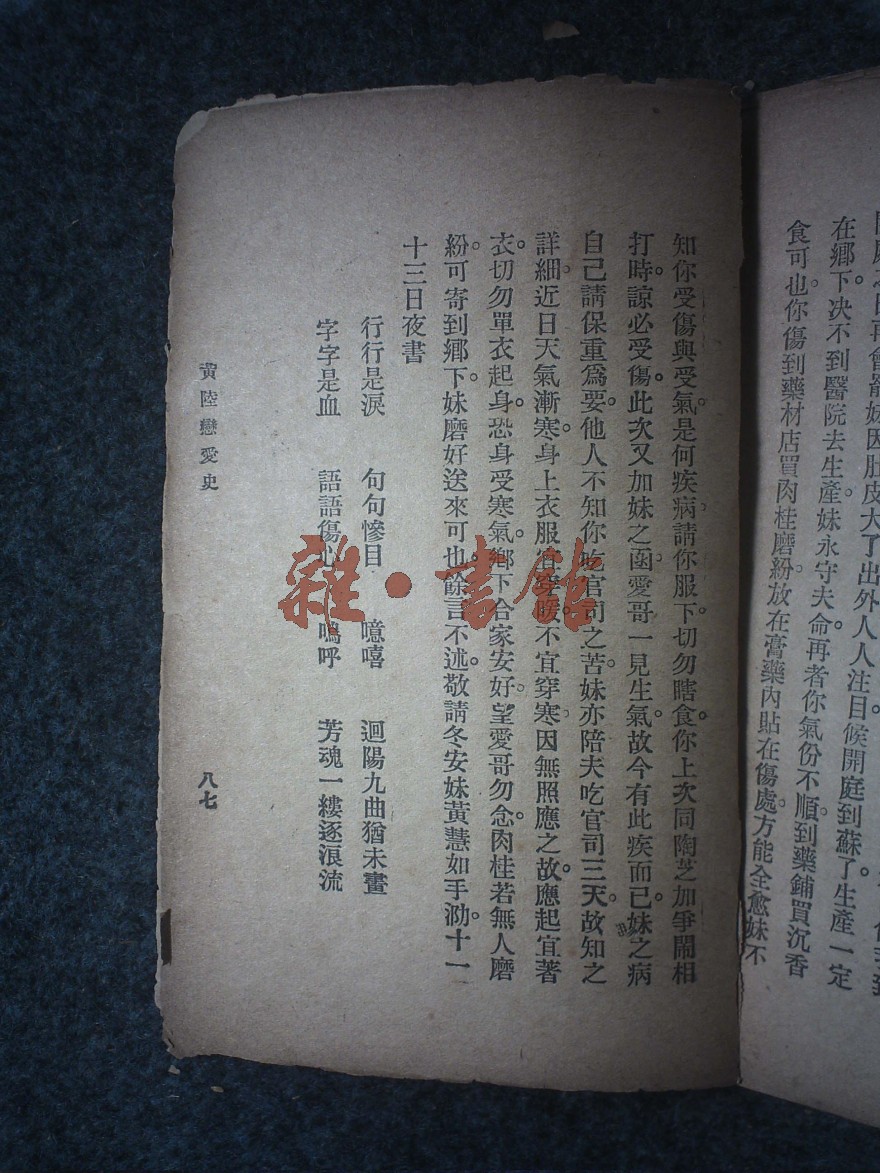 在鄉下。决不到醫院去生產。妹永守夫命再者你氣份不順。到藥鋪買沉香
食可也。你傷到藥材店買肉桂磨紛。放在膏藥內貼在傷處。方能全愈妹不
知你受傷與受氣。是何疾病。請你服下。切勿瞎食。你上次同陶芝加爭鬧相
打時。諒必受傷。此次又加妹之函。愛哥一見生氣。故今有此疾而已。妹之病
自己請保重爲要。他人不知你吃官司之苦。妹亦陪夫吃官司三天。故知之
詳細。近日天氣漸寒。身上衣服 不宜穿寒。因無照應之故。應起宜著
衣。切勿單衣起身。恐身受寒氣。鄉下合家安好。望愛哥勿念。肉桂若無人磨
紛。可寄到鄉下。妹磨好送來可也。餘言不述。敬請冬安妹黃慧如手泐。十一
十三日夜書
行行是淚 句句慘目 噫嘻 迴陽九曲猶未畫
字字是血 語語傷心 嗚呼 芳魂一縷逐浪流
黃陸戀愛史
八七
雜·書館